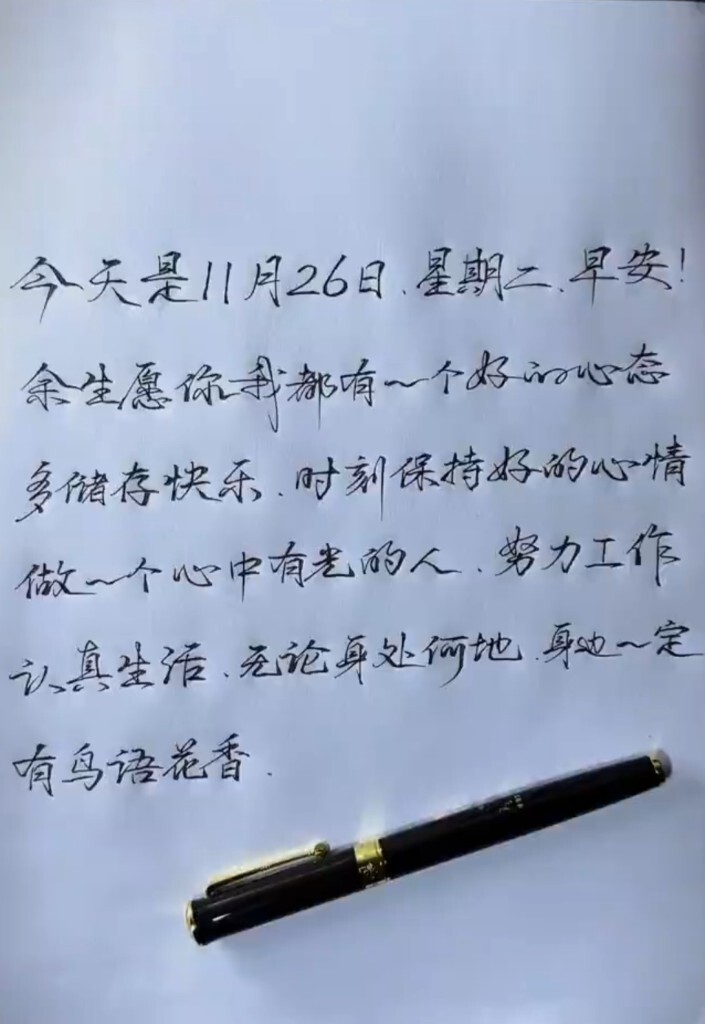 今天是11月26日、星期二、早安！
余生愿你我都有一个好的心态
多储存快乐、时刻保持好的心情
做一个心中有光的人、努力工作
认真生活、无论身处何地、身边一定
有鸟语花香.